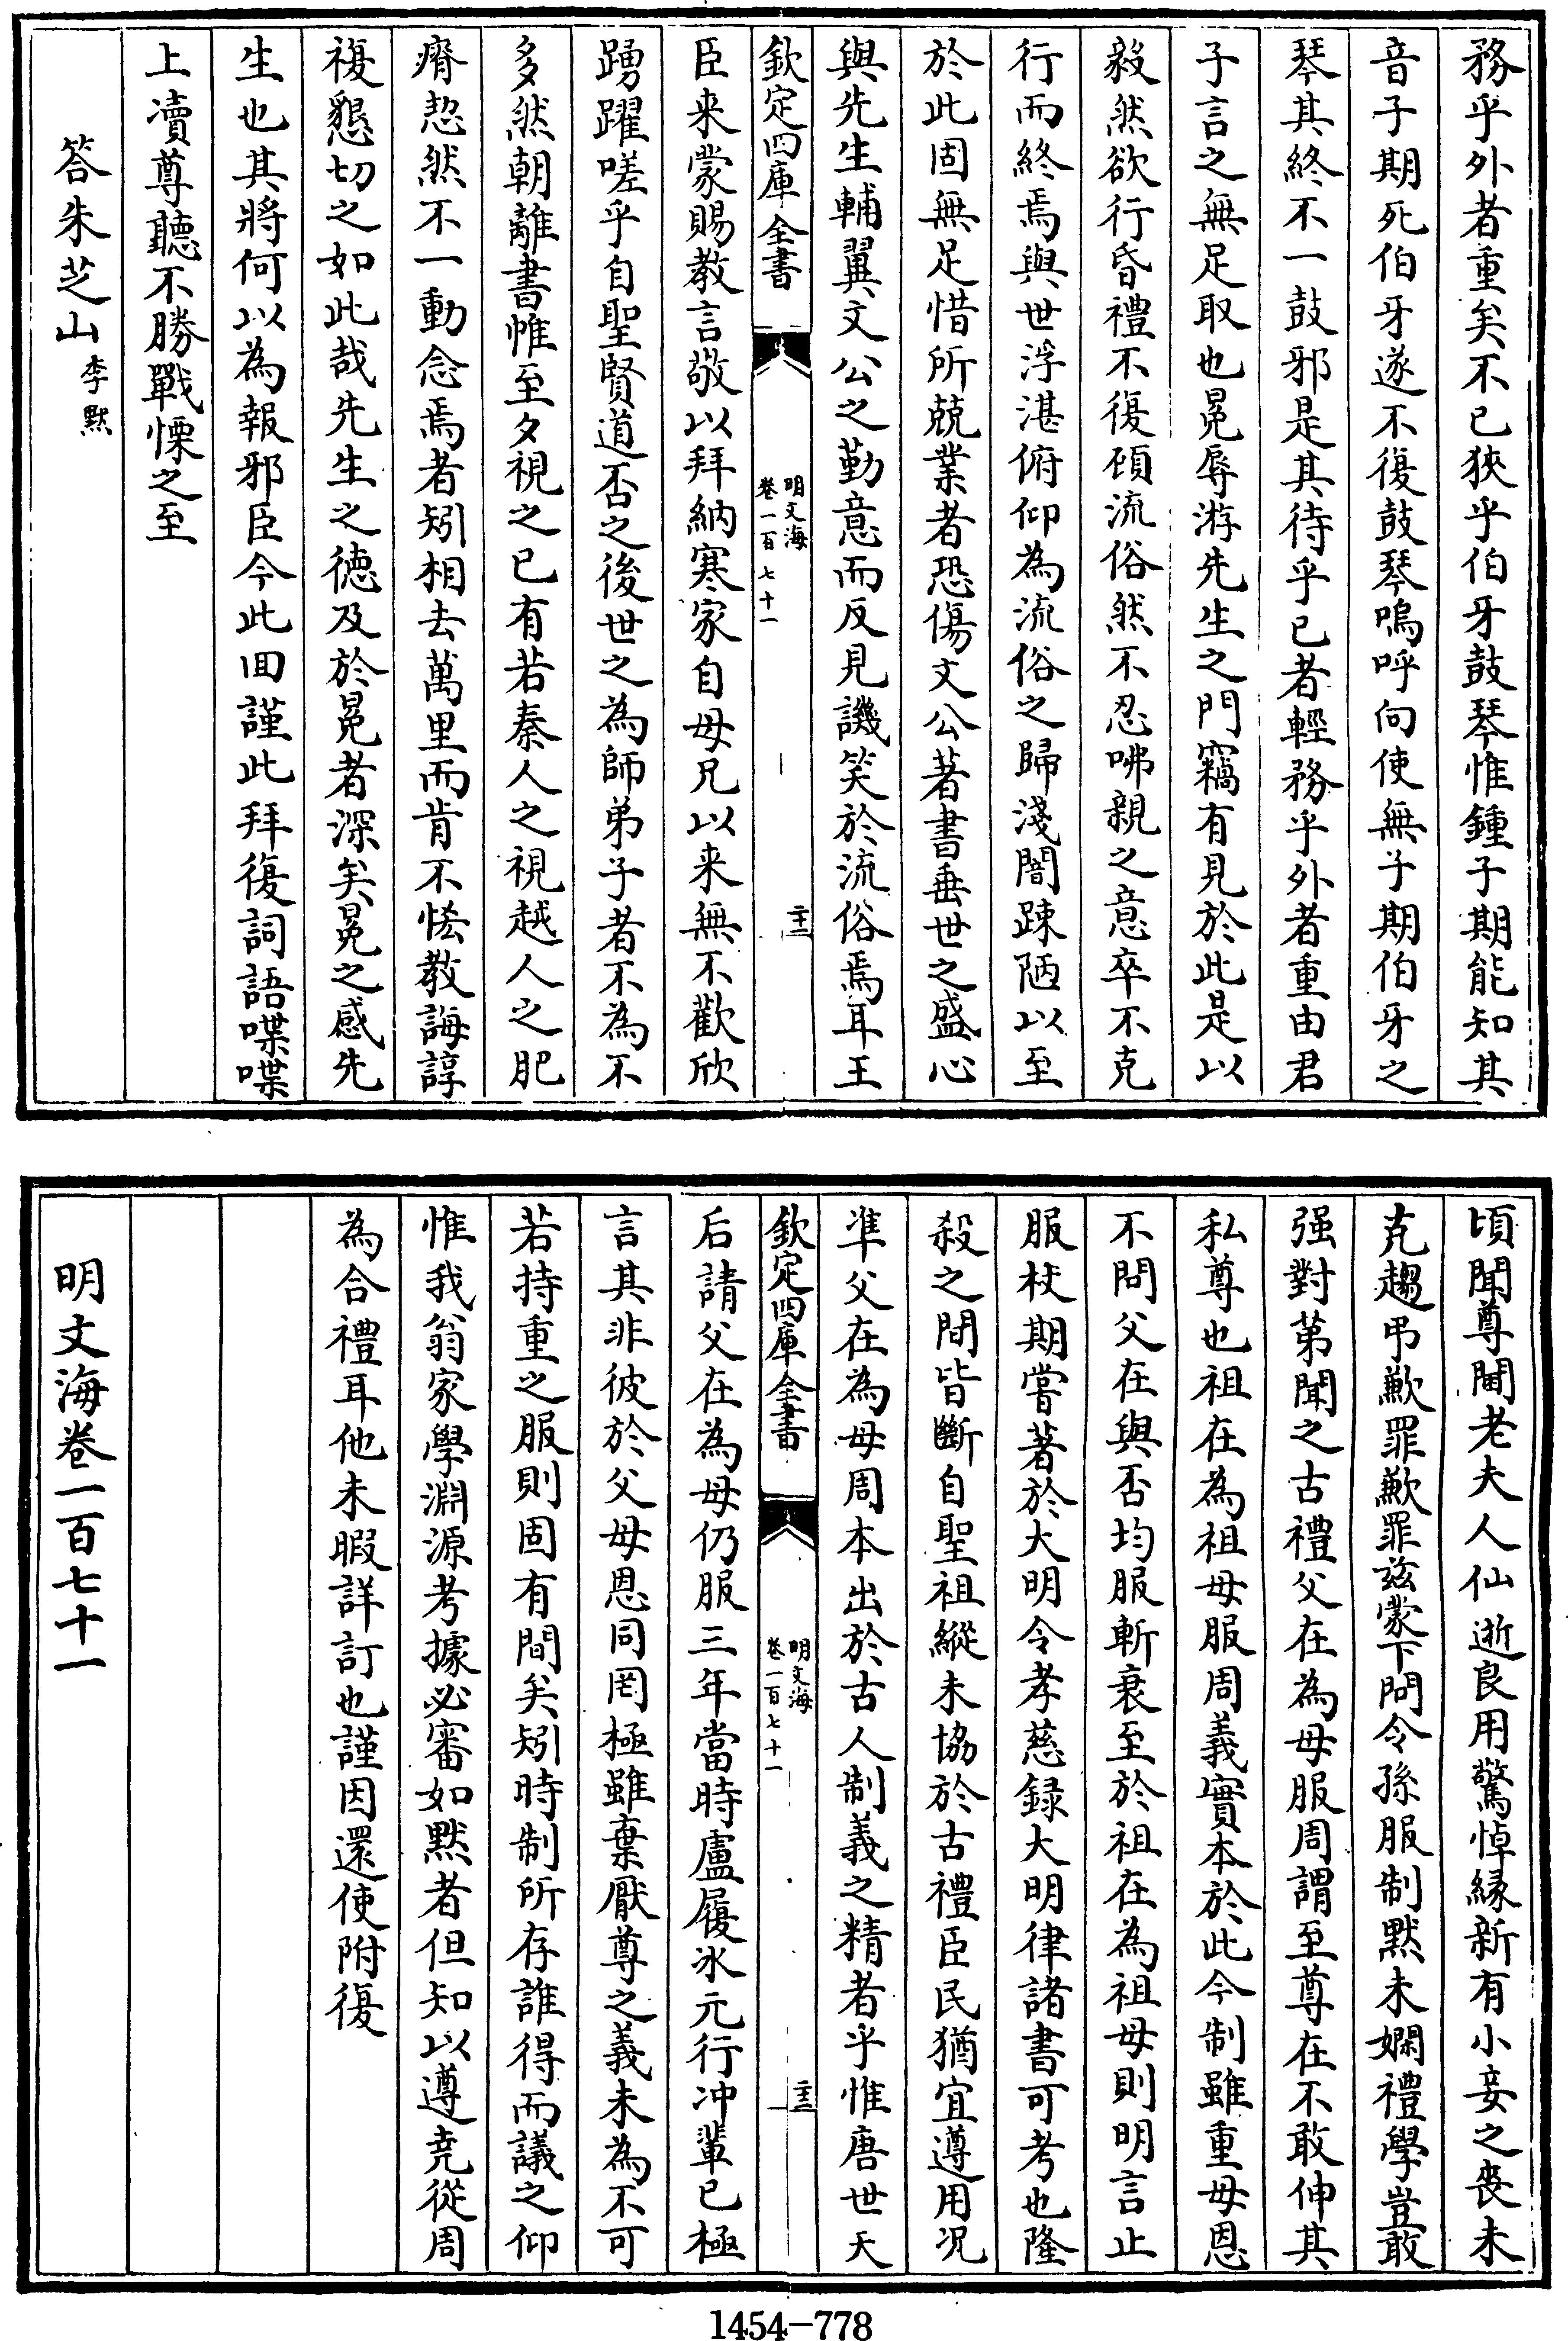 務乎外者重矣不已狹乎伯牙鼓琴惟鍾子期能知其
音子期死伯牙遂不復鼓琴嗚呼向使無子期伯牙之
琴其終不一鼓邪是其待乎已者輕務乎外者重由君
子言之無足取也冕辱游先生之門竊有見於此是以
毅然欲行昏禮不復顧流俗然不忍咈親之意卒不克
行而終焉與世浮湛俯仰為流俗之歸淺闇踈陋以至
於此固無足惜所兢業者恐傷文公著書垂世之盛心
與先生輔翼文公之勤意而反見譏笑於流俗焉耳王
欽定四庫全書
明文海
卷一百七十一
二十二
臣来蒙賜教言敬以拜納寒家自母兄以来無不歡欣
踴躍嗟乎自聖賢道否之後世之為師弟子者不為不
多然朝離書帷至夕視之已有若秦人之視越人之肥
瘠恝然不一動念焉者矧相去萬里而肯不恡教誨諄
複懇切之如此哉先生之德及於冕者深矣冕之感先
生也其將何以為報邪臣今此回謹此拜復詞語喋喋
上瀆尊聽不勝戰慄之至
答朱芝山李默
頃聞尊閫老夫人仙逝良用驚悼緣新有小妾之喪未
克趨弔歉罪歉罪茲蒙下問令孫服制默未嫻禮學豈敢
强對第聞之古禮父在為母服周謂至尊在不敢伸其
私尊也祖在為祖母服周義實本於此今制雖重母恩
不問父在與否均服斬衰至於祖在為祖母則明言止
服杖期嘗著於大明令孝慈録大明律諸書可考也隆
殺之間皆斷自聖祖縱未協於古禮臣民猶宜遵用况
準父在為母周本出於古人制義之精者乎惟唐世天
欽定四庫全書
明文海
卷一百七十一
二十三
后請父在為母仍服三年當時盧履冰元行冲輩已極
言其非彼於父母恩同罔極雖棄厭尊之義未為不可
若持重之服則固有間矣矧時制所存誰得而議之仰
惟我翁家學淵源考據必審如默者但知以遵堯從周
為合禮耳他未暇詳訂也謹因還使附復
明文海卷一百七十一
1454-778